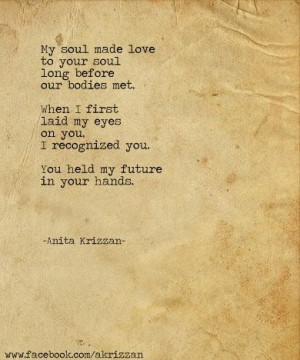 My soul made love
to your soul
long before
our bodies met.
When I first
laid my eyes
on you,
I recognized you.
You held my future
in your hands.
-Anita Krizzan-
www.facebook.com/akrizzan